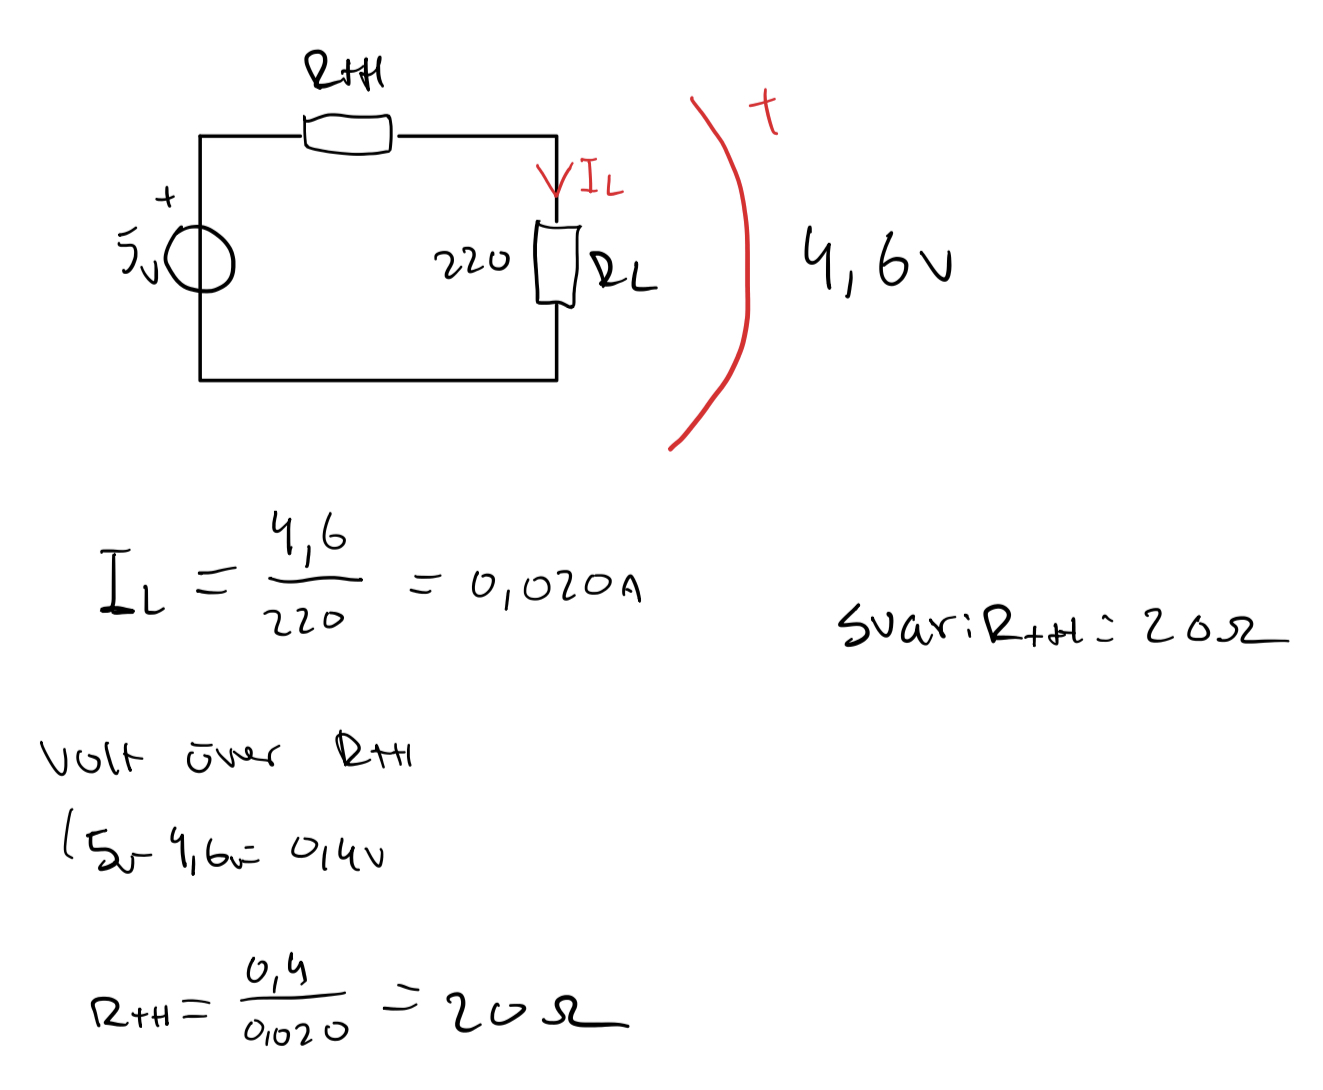 RTH
+
5v
IL
220
RL
+
4,6v
IL = 4,6/220 = 0,020A
Svar: RTH = 20Ω
Volt över RTH
(5v- 4,6v= 0,4v
RTH = 0,4/0,020 = 20Ω